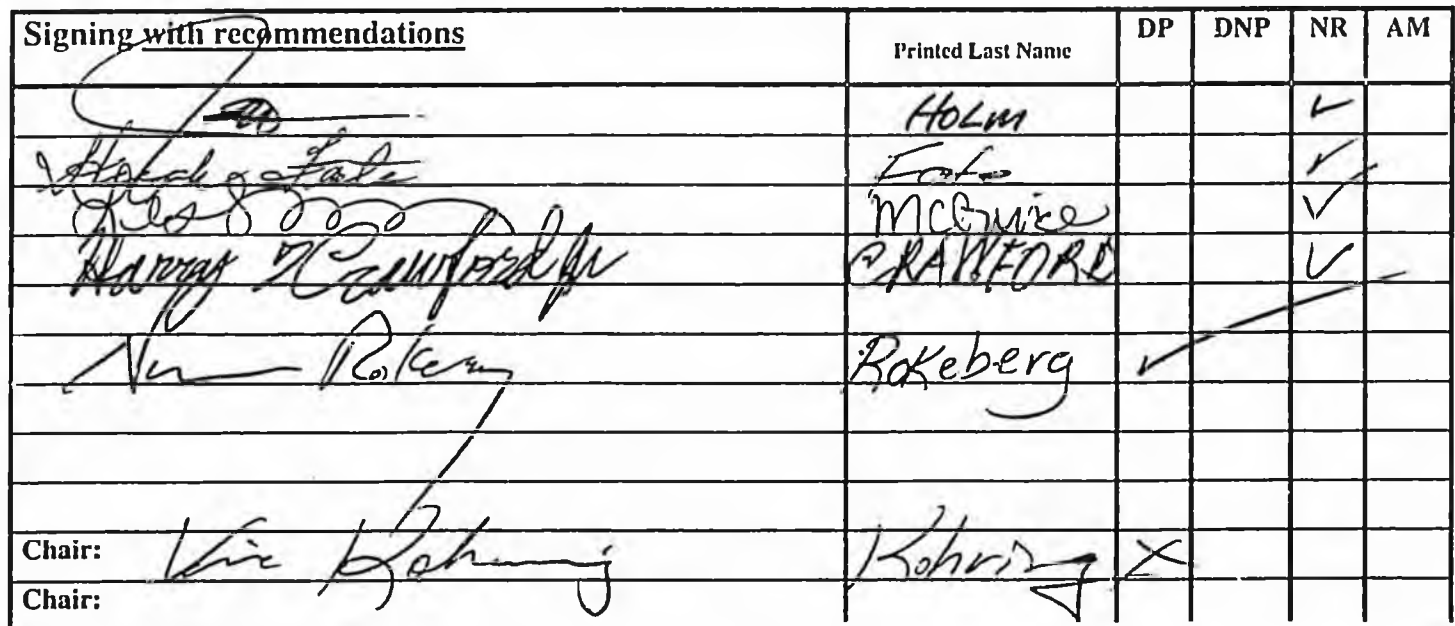 Signing with recommendations Printed Last Name DP DNP NR AM
HOLM ✓
Fate ✓
McGuire ✓
Harry T Crawford Jr CRAWFORD ✓
Norman Rokeberg Rokeberg ✓
Chair: Vic Kohring Kohring X
Chair: